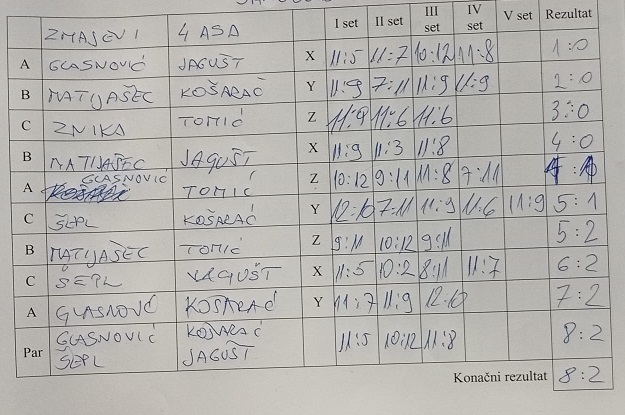 ZMAJEVI 4 ASA I set II set III set IV set V set Rezultat
A GLASNOVIĆ JAGUŠT X 11:5 11:7 10:12 11:8 1:0
B MATIJAŠEC KOŠARAĆ Y 11:9 7:11 11:9 11:9 2:0
C ZNIKA TOMIĆ Z 11:9 11:6 11:6 3:0
B MATIJAŠEC JAGUŠT X 11:9 11:3 11:8 4:0
A GLASNOVIĆ TOMIĆ Z 10:12 9:11 11:8 7:11
C ŠEPL KOŠARAĆ Y 12:10 7:11 11:9 11:6 11:9 5:1
B MATIJAŠEC TOMIĆ Z 9:11 10:12 9:11 5:2
C ŠEPL JAGUŠT X 11:5 10:2 8:11 11:7 6:2
A GLASNOVIĆ KOŠARAĆ Y 11:7 11:9 12:10 7:2
Par GLASNOVIĆ ŠEPL KOŠARAĆ JAGUŠT 11:5 10:12 11:8 8:2
Konačni rezultat 8:2